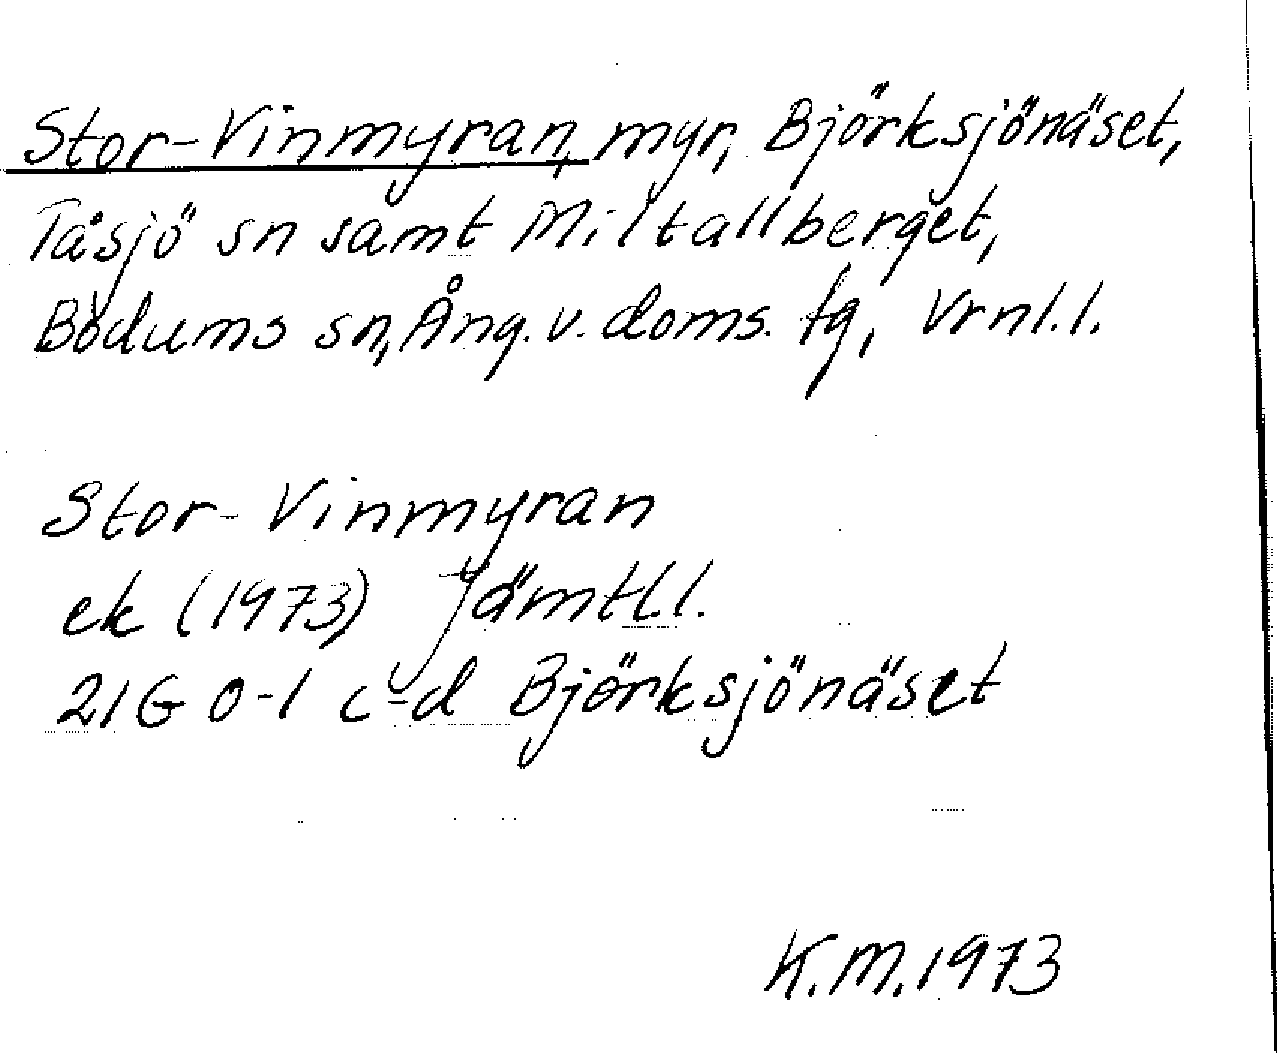 Stor-Vinmyran, myr, Björksjönäset,
Tåsjö sn samt Miltallberget,
Bodums sn, Ång. v. doms. tg, Vrnl.l.
Stor-Vinmyran
ek (1973) Jämtl.l.
21G 0-1 c-d Björksjönäset
K.M. 1973